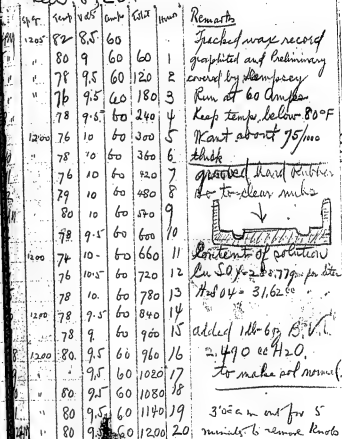 Sp.Gr. Temp Volts Amps Total Hours Remarks
1205 82 8.5 60 Wax record
80 9 60 60 1 graphited and Preliminary
78 9.5 60 120 2 covered by Dempsey
76 9.5 60 180 3 Run at 60 Amps
78 9.5 60 240 4 Keep temp. below 80°F
1200 76 10 60 300 5 Want about 75/1000
" 78 10 60 360 6 thick
76 10 60 420 7 grooved hard Rubber
79 10 60 480 8 to clear
80 10 60 540 9
78 9.5 60 600 10
1200 74 10- 60 660 11 Content of solution
76 10.5 60 720 12 Cu SO4 = per liter
78 10. 60 780 13 H2SO4 = 31.62 cc
1200 78 9.5 60 840 14
78 9. 60 900 15 added 1 lb-6 oz B.V.
1200 80. 9.5 60 960 16 2.490 cc H2O.
" 9.5 60 1020 17 to make sol normal.
80 9.5 60 1080 18
80 9.5 60 1140 19 3:00 a m out for 5
80 9.5 60 1200 20. minutes to remove Knobs